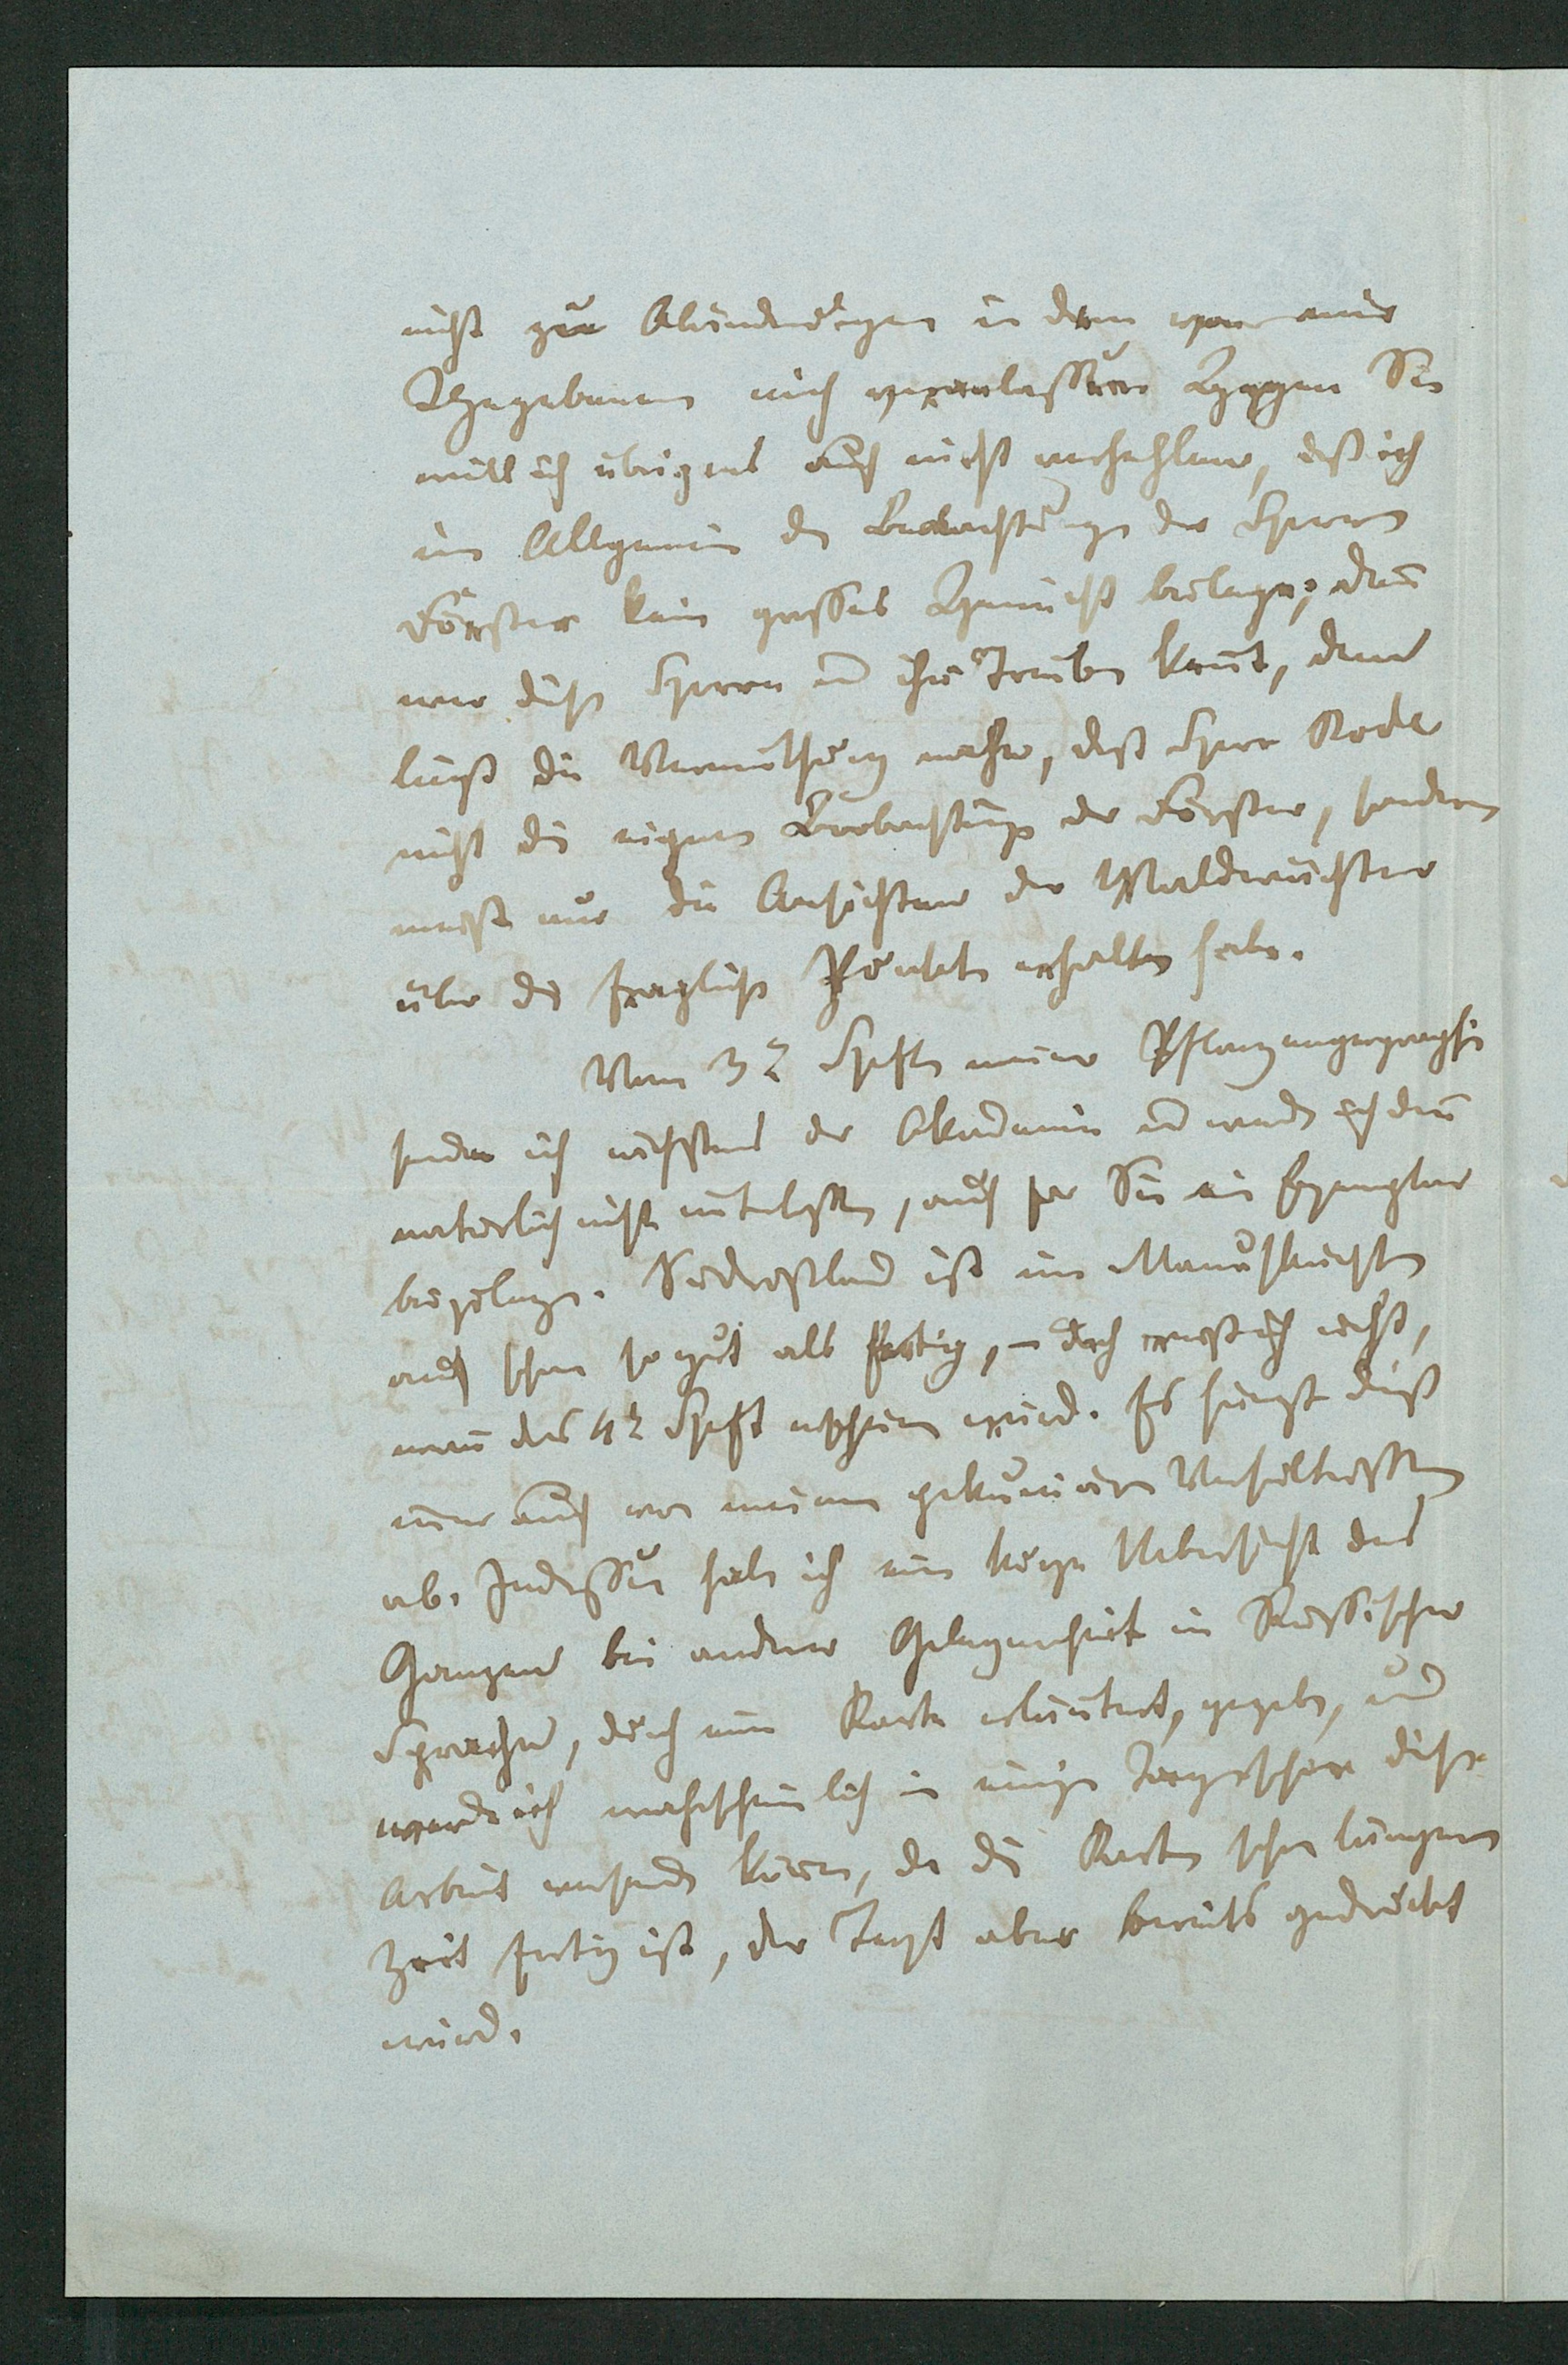 nicht zur Abänderung in dem von mir
Gegebenen mich veranlassen. Gegen Sie
will ich übrigens auch nicht verhehlen, daß ich
im Allgemein den Beobachtungen der Herren
Förster kein grosses Gewicht beilege; denn
wer diese Herren und ihr Treiben kennt, dem
liegt die Vermuthung nahe, daß Herr Bode
nicht die eigenen Beobachtungen der Förster, sondern
meist nur die Ansichten der Waldwächter
über die fraglichen Punkte erhalten habe.
Vom 3t Hefte meiner Pflanzengeographie
sende ich nächstens der Akademie und werde ich dann
natürlich nicht unterlassen, auch für Sie ein Exemplar
beizulegen. Südostland ist im Manuskripte
auch schon so gut als fertig, – doch weiß ich nicht,
wann das 4t Heft erscheinen wird. Es hängt dieß
nur auch von meinen pekuniären Verhältnissen
ab. Indessen habe ich eine kurze Uebersicht des
Ganzen bei anderer Gelegenheit in Russischer
Sprache, durch eine Karte erläutert, gegeben, und
werde ich wahrscheinlich in einigen Tagen schon diese
Arbeit versenden können, da die Karte schon längere
Zeit fertig ist, der Text aber bereits gedruckt
wird.